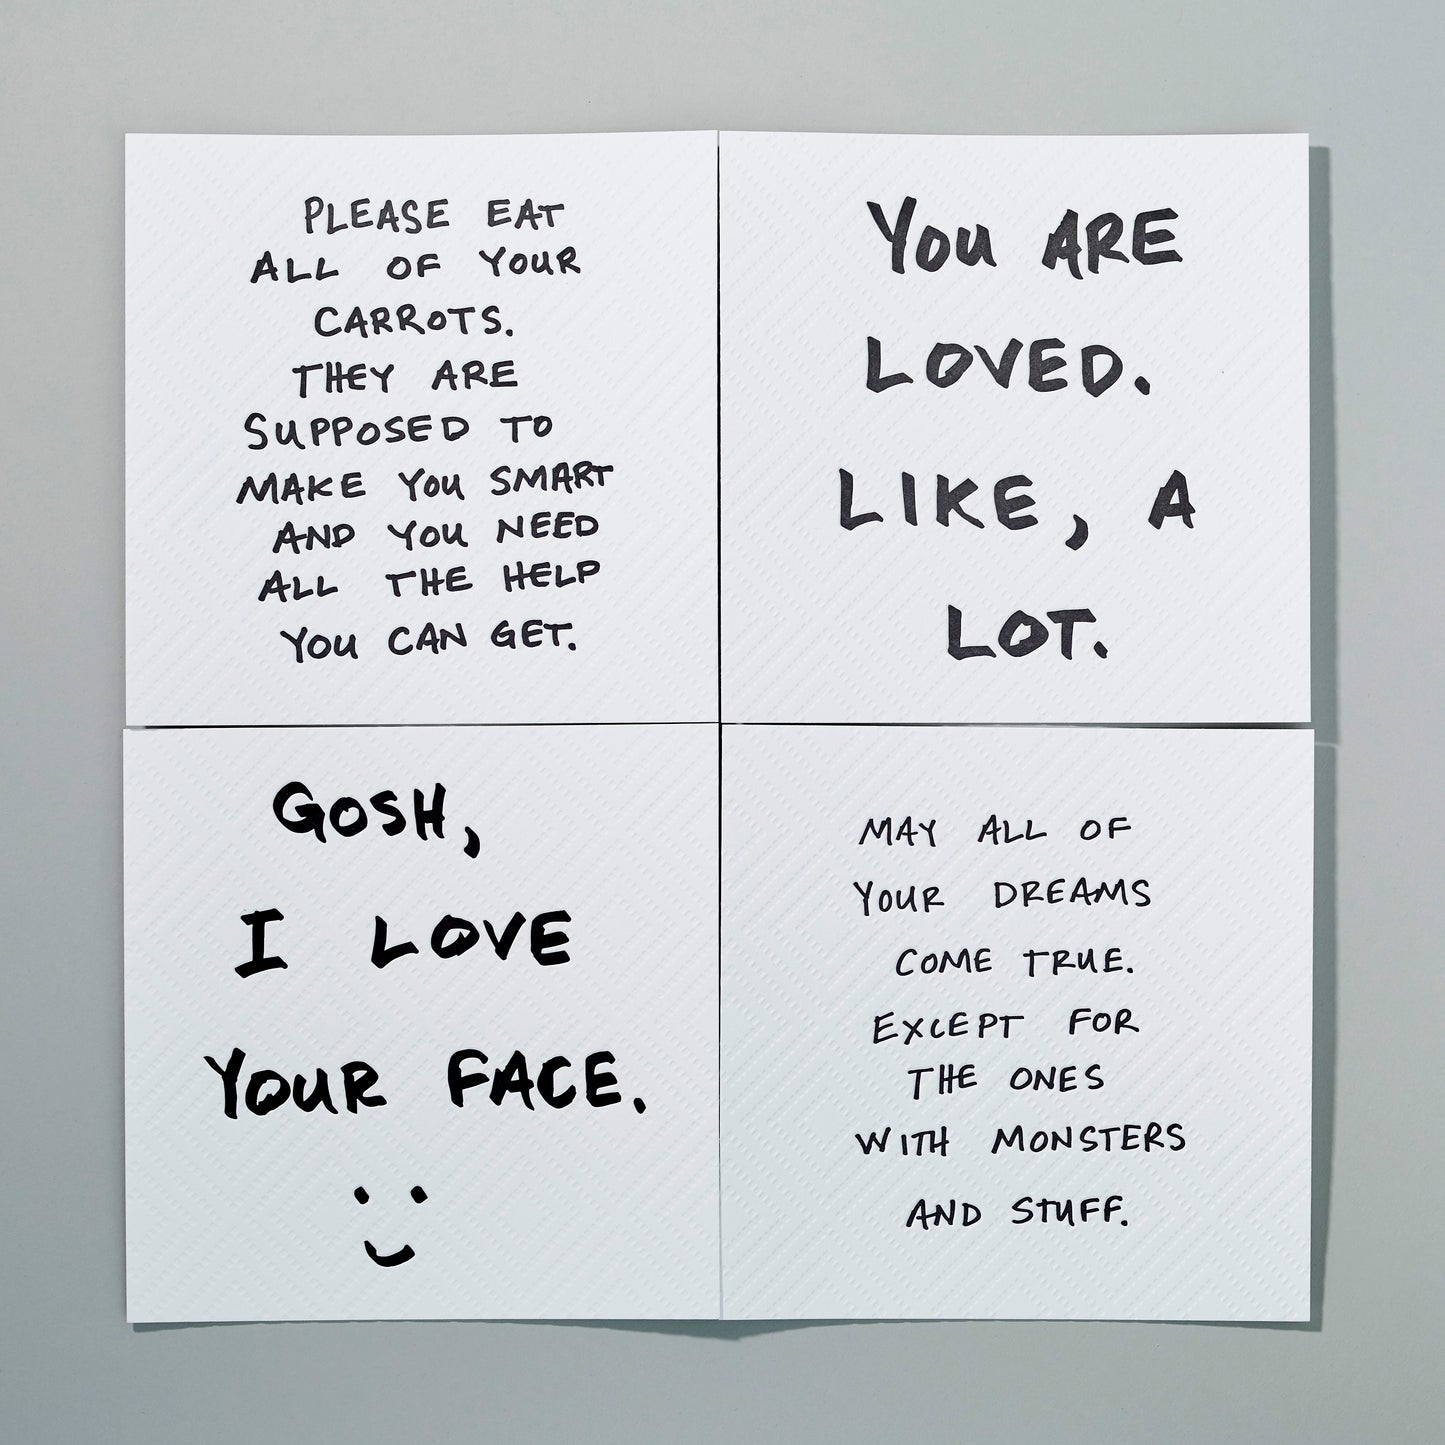 PLEASE EAT
ALL OF YOUR
CARROTS.
THEY ARE
SUPPOSED TO
MAKE YOU SMART
AND YOU NEED
ALL THE HELP
YOU CAN GET.
YOU ARE
LOVED.
LIKE, A
LOT.
GOSH,
I LOVE
YOUR FACE.
MAY ALL OF
YOUR DREAMS
COME TRUE.
EXCEPT FOR
THE ONES
WITH MONSTERS
AND STUFF.